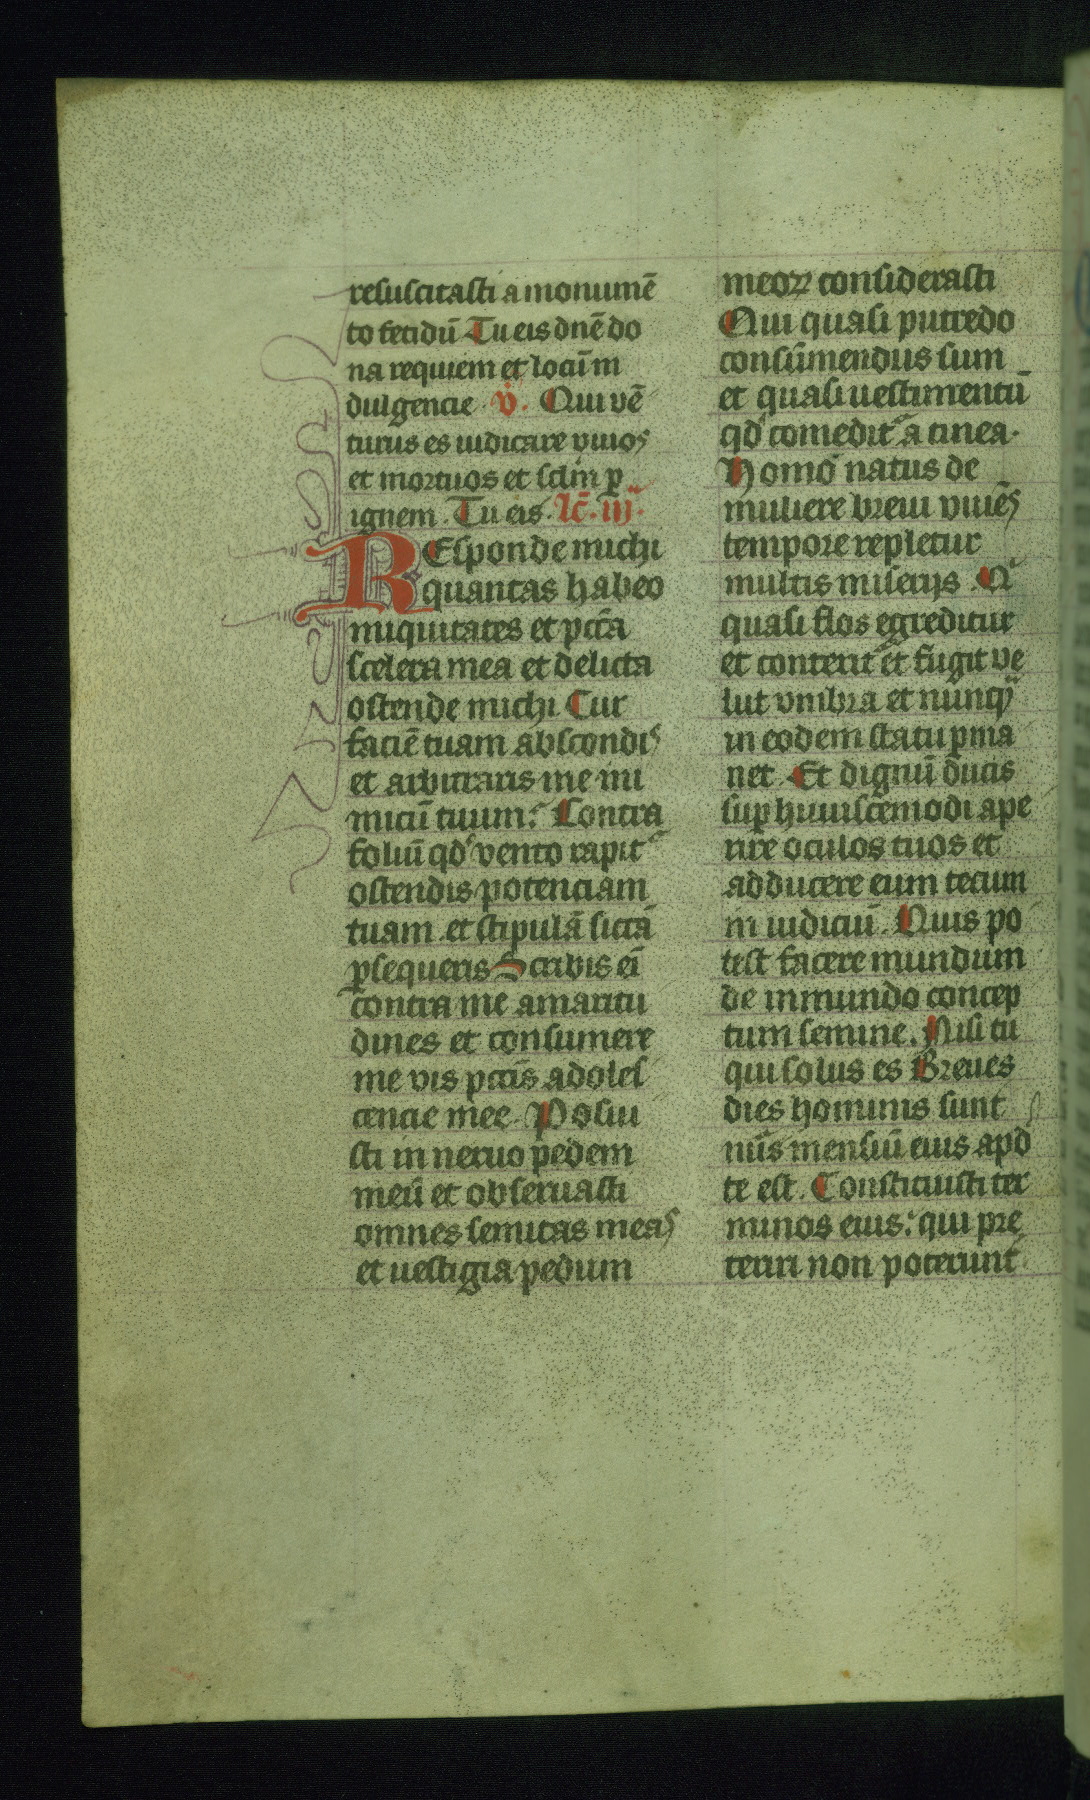 resuscitasti a monumē
to fetidū Tu eis dnē do
na requiem et locū in
dulgencie v̇. Qui vē
turus es iudicare viuos
et mortuos et sclm̄ p̱
ignem. Tu eis. lc̄. iij.
REsponde michi
quantas habeo
iniquitates et pctā
scelera mea et delicta
ostende michi Cur
faciē tuam abscondis
et arbitraris me ini
micū tuum: Contra
foliū qd̓ vento rapit᷑
ostendis potenciam
tuam. et stipulā siccā
p̱sequeris Scribis eī
contra me amaritu
dines et consumere
me vis pctīs adoles
cencie mee. Posui
sti in neruo pedem
meū et obseruasti
omnes semitas meas
et uestigia pedum
meoꝝ considerasti
Qui quasi putredo
consūmendus sum
et quasi uestimentū
qd̓ comedit᷑ a tinea.
Homo natus de
muliere breui viuēs
tempore repletur
multis miserijs. Qͥ
quasi flos egreditur
et conterit᷑ et fugit ve
lut vmbra et nunqͣ
in eodem statu p̱ma
net. Et dignū ducis
sup̱ huiuscemodi ape
rire oculos tuos et
adducere eum tecum
in iudiciū. Quis po
test facere mundum
de inmundo concep
tum semine. Nisi tu
qui solus es Breues
dies hominis sunt
nūs mensiū eius apd̓
te est. Constituisti ter
minos eius: qui pre
teriri non poterunt